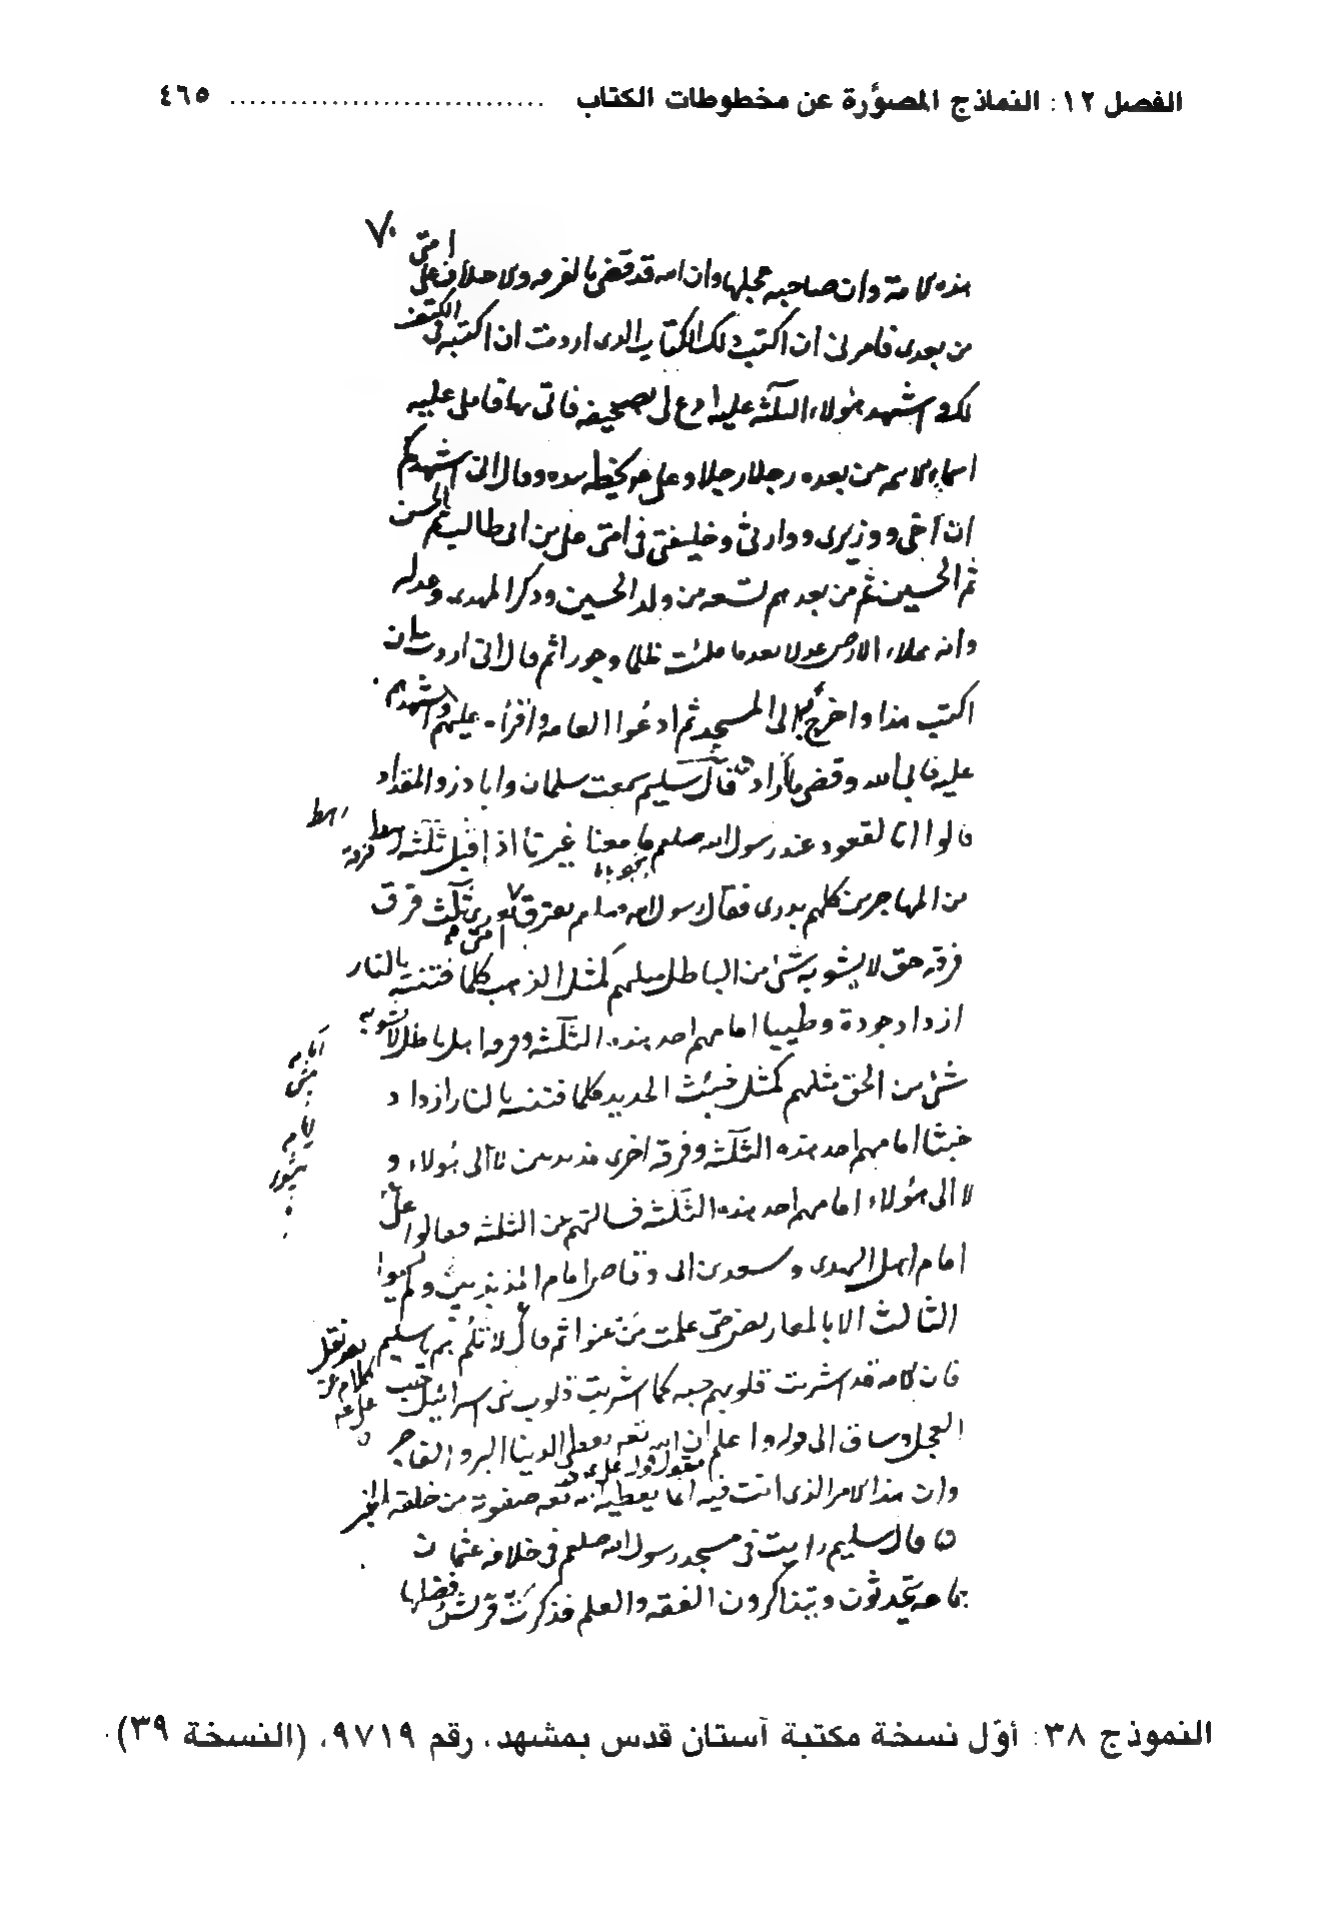 الفصل ١٢: النماذج المصوّرة عن مخطوطات الكتاب .............................. ٤٦٥
٧٠
هذه الامة وان صاحبه عجلها وان الله قد قضى بالفرقه والاختلاف على امتى
من بعدى فامرنى ان اكتب ذلك الكتاب الذى اردت ان اكتبه فى الكتف
لك واشهد هولاء الثلثة عليه ادع لى بصحيفه فاتى بها فاملى عليه
اسماء الائمه من بعده رجلا رجلا وعلى يخطه بيده وقال انى اشهدكم
ان اخى ووزيرى ووارثى وخليفتى فى امتى على بن ابى طالب ثم الحسن
ثم الحسين ثم من بعدهم تسعه من ولد الحسين وذكر المهدى وعدله
وانه يملاء الارض عدلا بعد ما ملئت ظلما وجورا ثم قال انى اردت ان
اكتب هذا واخرج به الى المسجد ثم ادعوا العامه واقرأ عليهم واشهدهم
عليه فابى الله وقضى ما اراد قال سليم سمعت سلمان وابا ذر والمقداد
قالوا انا لقعود عند رسول الله صلعم ما معنا غيرنا اذ اقبل ثلثة رهط
من المهاجرين كلهم بدرى فقال رسول الله صلعم تفترق امتى ثلث فرق
فرقه حق لا يشوبه شئ من الباطل مثلهم كمثل الذهب كلما فتنته بالنار
ازداد جودة وطيبا امامهم احد هذه الثلثة وفرقه اهل باطل لا يشوبه
شئ من الحق مثلهم كمثل خبث الحديد كلما فتنته بالنار ازداد
خبثا امامهم احد هذه الثلثة وفرقه اخرى مذبذبين لا الى هولاء و
لا الى هؤلاء امامهم احد هذه الثلثة فسالتهم عن الثلثه فقالوا على
امام اهل الهدى وسعد بن ابى وقاص امام المذبذبين ولم يسموا
الثالث الا بالمعاريض حتى علمت من عنوا ثم قال لا تلم يا سليم
فان الامه قد اشربت قلوبهم حبه كما اشربت قلوب بنى اسرائيل حب
العجل وساق الى قوله واعلم ان الله تعه يعطى الدنيا البر والفاجر
وان هذا الامر الذى انت فيه انما يعطيه الله تعه صفوته من خلقه الخبر
قال سليم رايت فى مسجد رسول الله صلعم فى خلافه عثمان
جماعه يتحدثون ويتذاكرون الفقه والعلم فذكرت قريش فضلها
النموذج ٣٨: أوّل نسخة مكتبة آستان قدس بمشهد، رقم ٩٧١٩، (النسخة ٣٩).